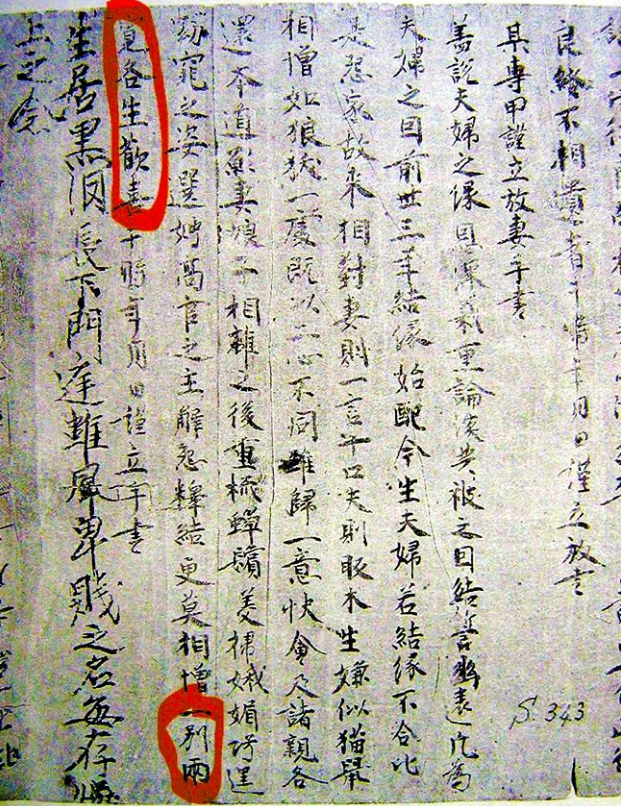 良緣不相者于時年月日謹立放書
某專甲謹立放妻手書
蓋說夫婦之緣恩深義重論談共被之因結誓幽遠凡為
夫婦之因前世三年結緣始配今生夫婦若結緣不合比
是怨家故來相對妻則一言十口夫則販木生嫌似猫鼠
相憎如狼犺一處既以二心不同難歸一意快會及諸親各
還本道願妻娘子相離之後重梳蟬鬢美裙娥媚巧逞
窈窕之姿選娉高官之主解怨釋結更莫相憎一別兩
寬各生歡喜于時年月日謹立手書
生居黑長下門庭雖屬卑賤之名每存
上之念
S.343